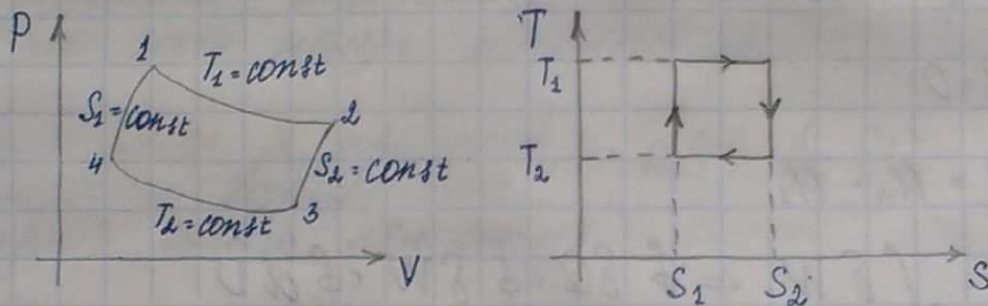 P
1
T₁ = const
S₁ = const
2
4
S₂ = const
T₂ = const
3
V
T
T₁
T₂
S₁ S₂
S